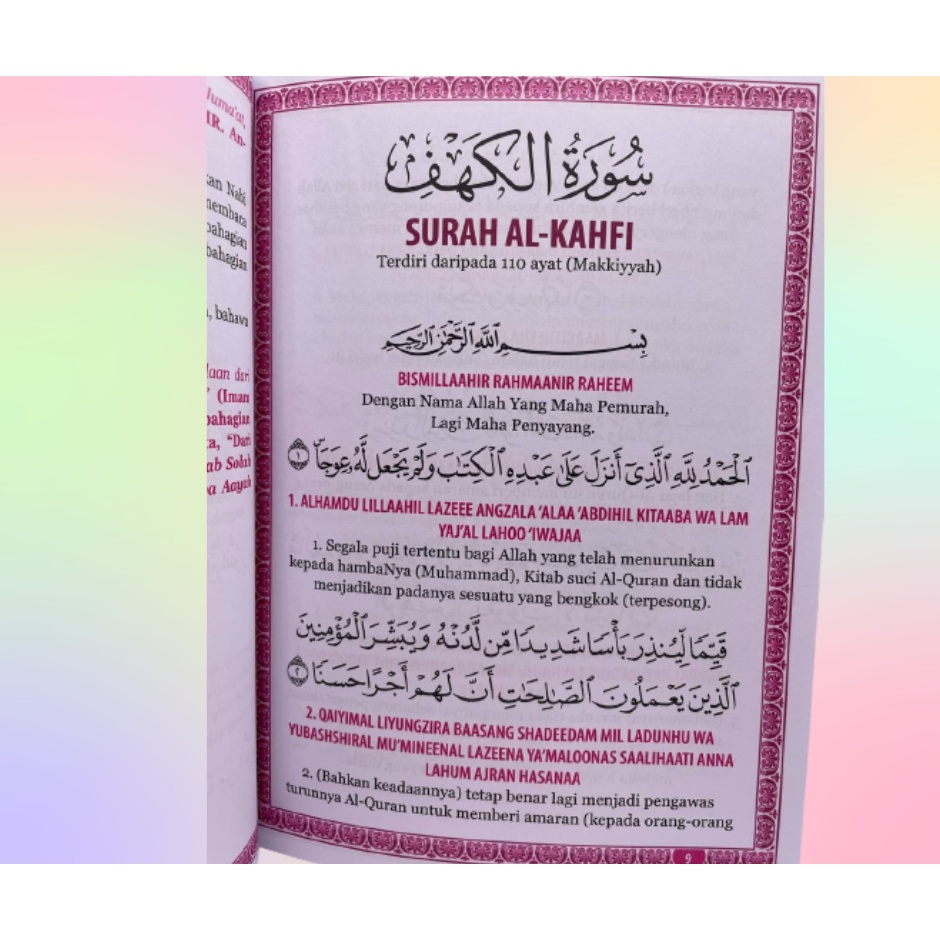 Juma'at,
An-
Nabi
membaca
bahagian
bahagian
bahawa
dari
(Imam
bahagian
"Dari
Solah
Aayah
سُورَةُ الكَهْفِ
SURAH AL-KAHFI
Terdiri daripada 110 ayat (Makkiyyah)
بِسْمِ اللَّهِ الرَّحْمَٰنِ الرَّحِيمِ
BISMILLAAHIR RAHMAANIR RAHEEM
Dengan Nama Allah Yang Maha Pemurah,
Lagi Maha Penyayang.
الْحَمْدُ لِلَّهِ الَّذِي أَنزَلَ عَلَىٰ عَبْدِهِ الْكِتَابَ وَلَمْ يَجْعَل لَّهُ عِوَجَا ۜ ١
1. ALHAMDU LILLAAHIL LAZEEE ANGZALA 'ALAA 'ABDIHIL KITAABA WA LAM
YAJ'AL LAHOO 'IWAJAA
1. Segala puji tertentu bagi Allah yang telah menurunkan
kepada hambaNya (Muhammad), Kitab suci Al-Quran dan tidak
menjadikan padanya sesuatu yang bengkok (terpesong).
قَيِّمًا لِّيُنذِرَ بَأْسًا شَدِيدًا مِّن لَّدُنْهُ وَيُبَشِّرَ الْمُؤْمِنِينَ
الَّذِينَ يَعْمَلُونَ الصَّالِحَاتِ أَنَّ لَهُمْ أَجْرًا حَسَنًا ٢
2. QAIYIMAL LIYUNGZIRA BAASANG SHADEEDAM MIL LADUNHU WA
YUBASHSHIRAL MU'MINEENAL LAZEENA YA'MALOONAS SAALIHAATI ANNA
LAHUM AJRAN HASANAA
2. (Bahkan keadaannya) tetap benar lagi menjadi pengawas
turunnya Al-Quran untuk memberi amaran (kepada orang-orang
9